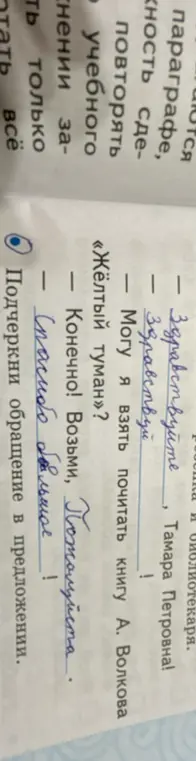 ются
параграфе,
ность сде-
повторять
учебного
нении за-
ть только
тать всё
ребёнка и библиотекаря.
— Здравствуйте, Тамара Петровна!
— Здравствуй!
— Могу я взять почитать книгу А. Волкова
«Жёлтый туман»?
— Конечно! Возьми, Пожалуйста.
— Спасибо большое!
Подчеркни обращение в предложении.